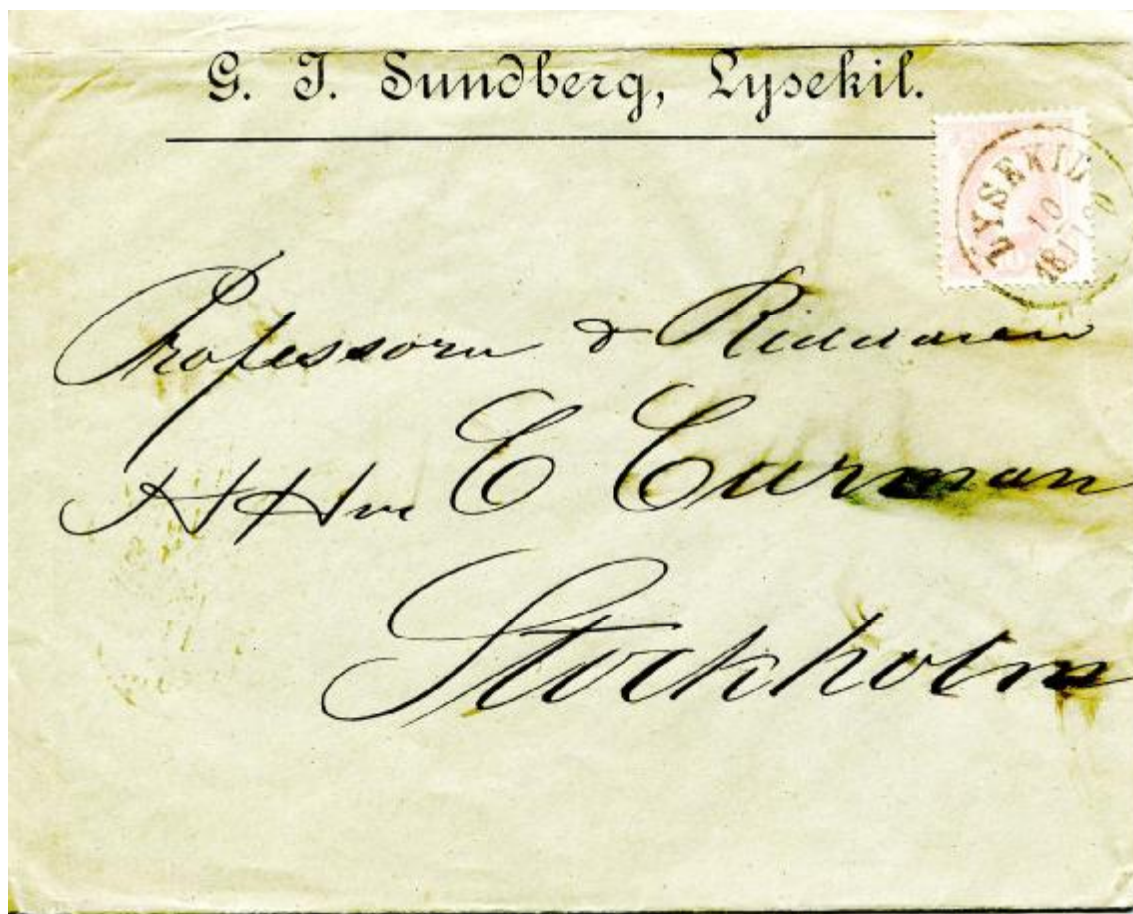 G. J. Sundberg, Lysekil.
LYSEKIL
10
Professorn & Riddaren
C Curman
Stockholm